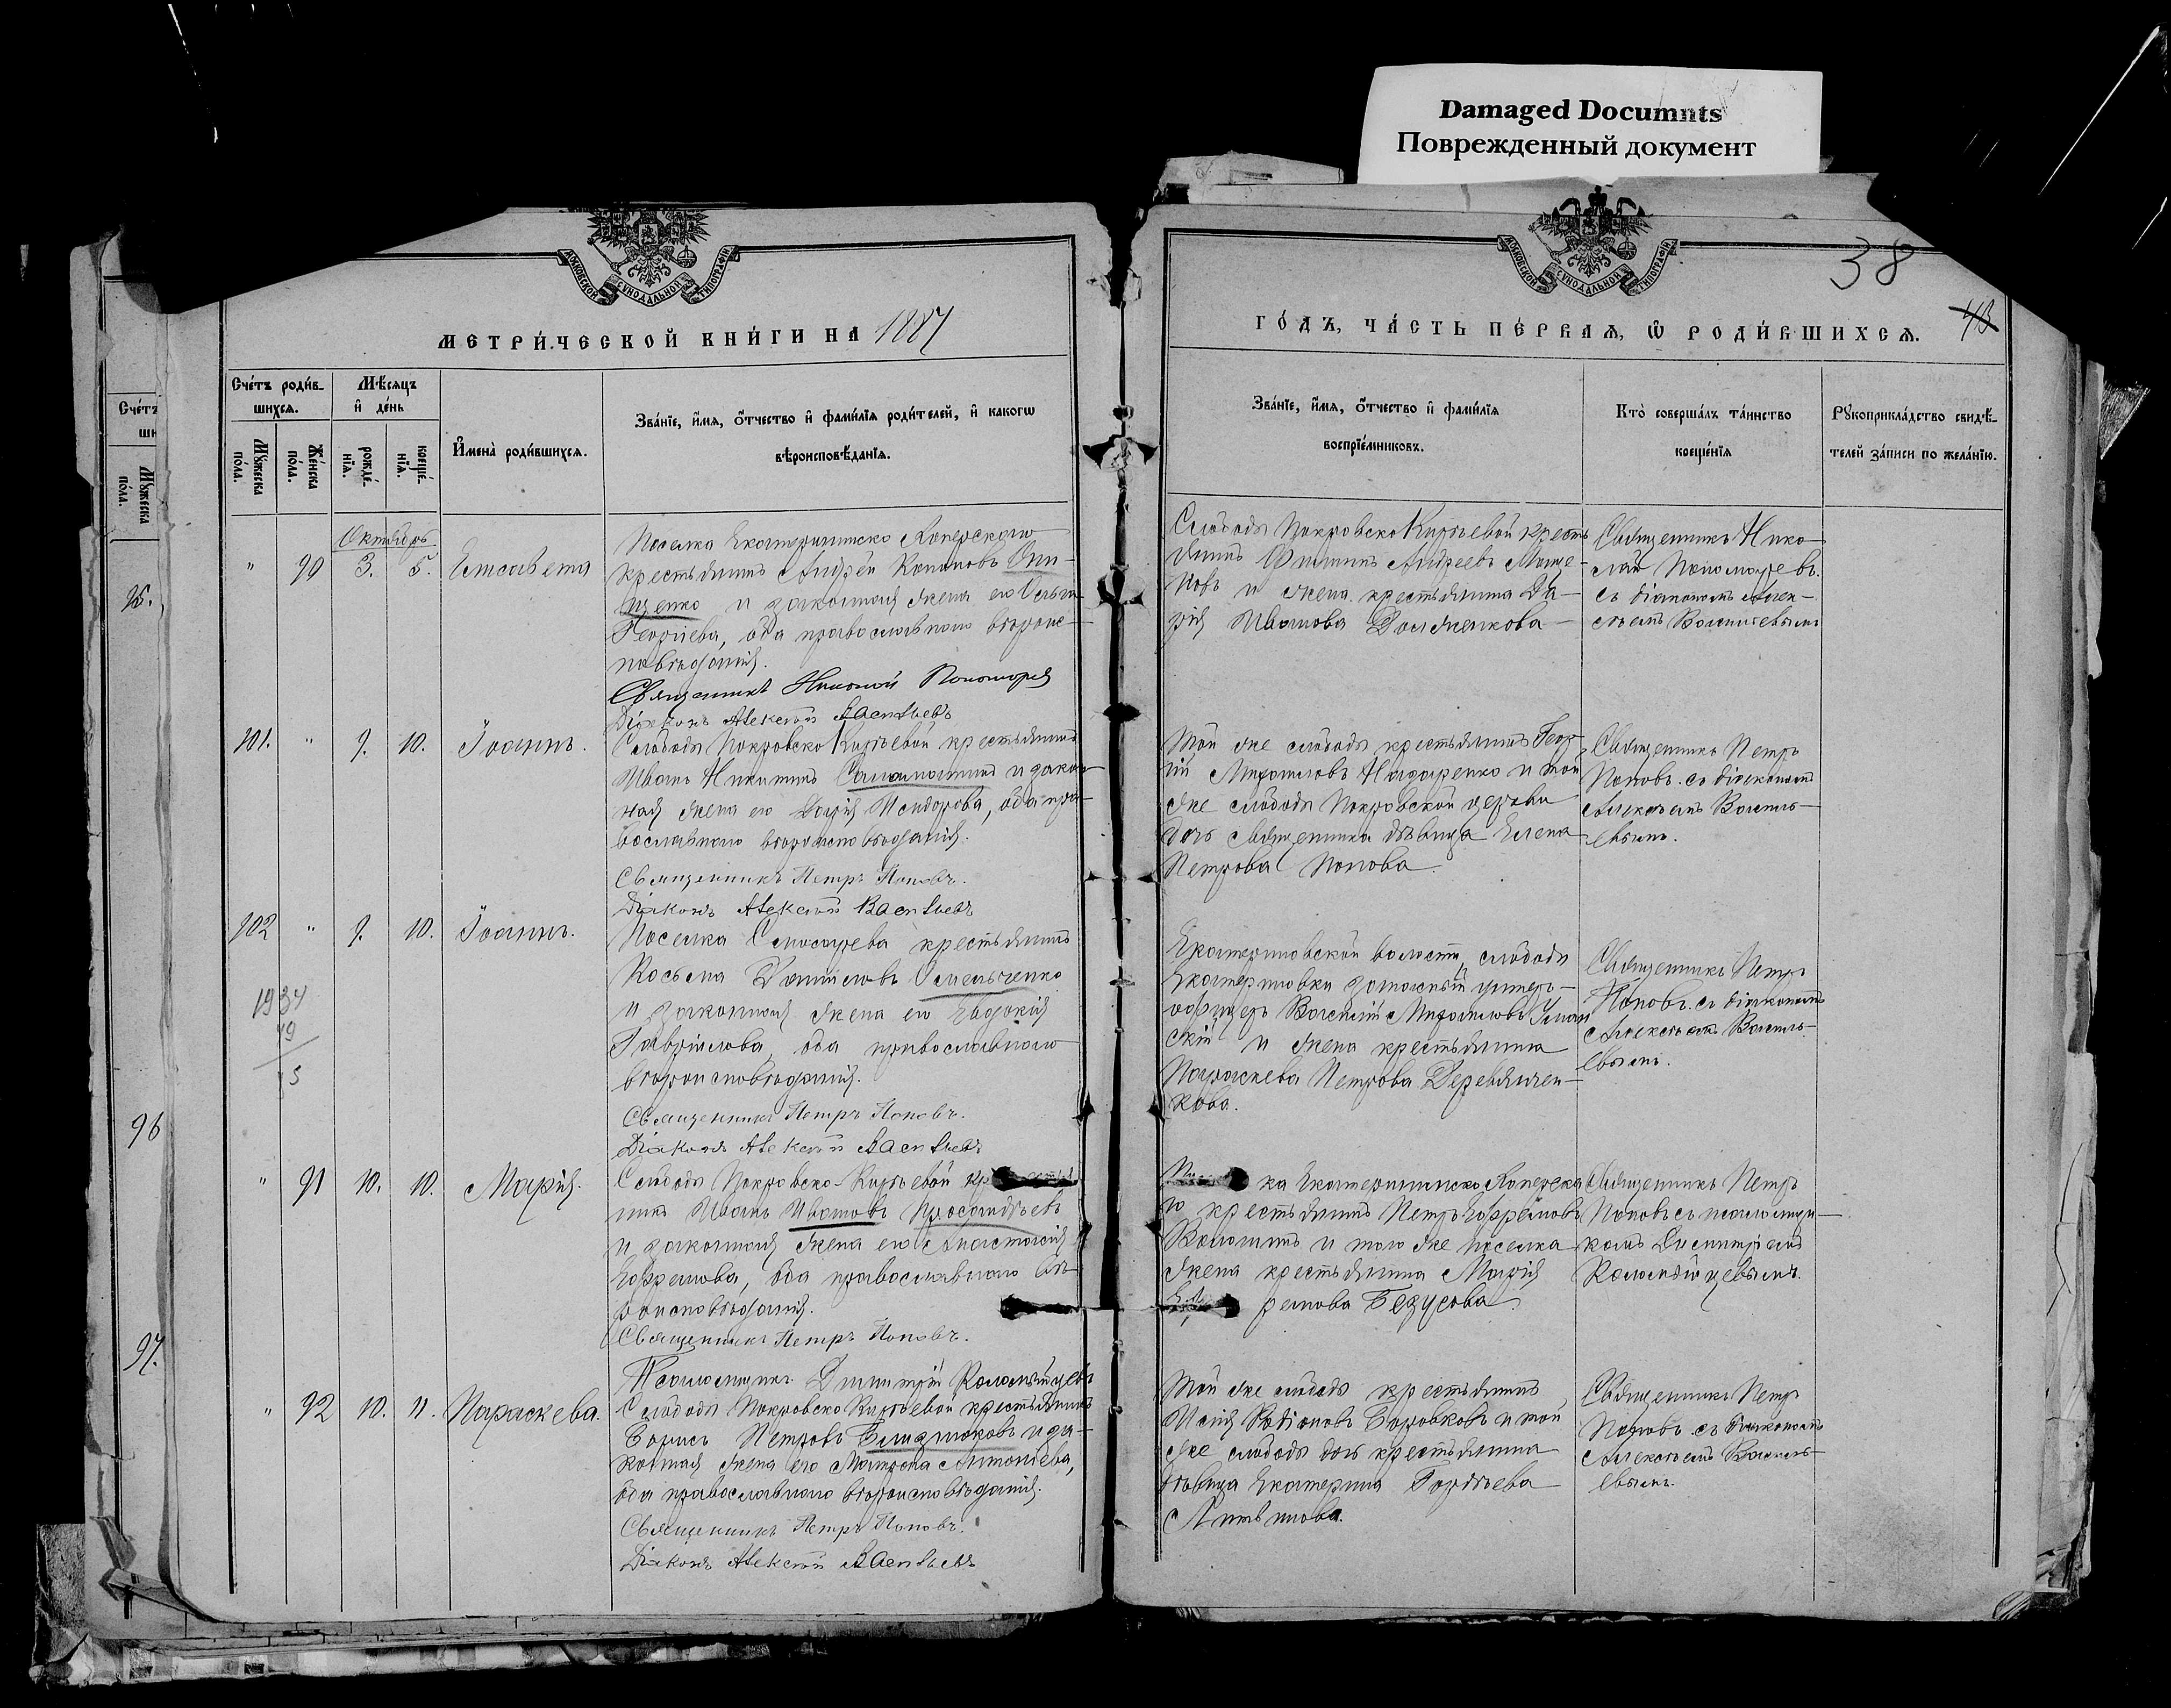 Damaged Documnts
Поврежденный документ
МОСКОВСКОЙ СѴНОДАЛЬНОЙ ТИПОГРАФІИ
МОСКОВСКОЙ СѴНОДАЛЬНОЙ ТИПОГРАФІИ
38
43
МЕТРИ́ЧЕСКОЙ КНИ́ГИ НА 1887
ГО́ДЪ, ЧА́СТЬ ПЕ́РВАѦ, Ѡ҆ РОДИ́ВШИХСѦ.
Сче́тъ роди́в-
шихсѧ.
Мꙋжеска по́ла.
Же́нска по́ла.
Мѣ́сѧцъ
и҆ де́нь
рожде́-
нїѧ.
креще́-
нїѧ.
И҆мена̀ роди́вшихсѧ.
Зва́нїе, и҆́мѧ, ѻ҆́тчество и҆ фами́лїѧ роди́телей, и҆ како́гѡ
вѣроисповѣ́данїѧ.
Зва́нїе, и҆́мѧ, ѻ҆́тчество и҆ фами́лїѧ
воспрїе́мниковъ.
Кто̀ соверша́лъ та́инство
креще́нїѧ
Рꙋкоприкла́дство свидѣ́-
телей за́писи по жела́нїю.
Сче́тъ
ши
Мꙋжеска
по́ла.
95.
96
97.
Октябрь
" 90 3. 5. Елисавета
Поселка Екатерининско Хоперскаго
крестьянинъ Андрей
и законная жена его Ольга
Георгіева, оба православнаго вѣроис-
повѣданія.
Священникъ Николай Пономарев
Діаконъ Алексѣй Васильевъ
Слободы Покровско Кирѣевой кресть
янинъ Филиппъ Андреевъ
и жена крестьянина Да-
рія Иванова Долженкова
Священникъ Нико-
лай Пономаревъ
съ діакономъ Алек-
сѣемъ Васильевымъ
101. " 9. 10. Іоаннъ.
Слободы Покровско Кирѣевой крестьянинъ
Иванъ Никитинъ и закон
ная жена его Дарія Исидорова, оба пра-
вославнаго вѣроисповѣданія.
Священникъ Петръ Поповъ.
Діаконъ Алексѣй Васильевъ
Той же слободы крестьянинъ Геор
гій Михаиловъ Назаренко и той
же слободы Покровской церкви
дочь священника дѣвица Елена
Петрова Попова.
Священникъ Петръ
Поповъ съ діакономъ
Алексѣемъ Василь-
евымъ.
102 " 9. 10. Іоаннъ.
Поселка крестьянинъ
Косьма Даниловъ Омельченко
и законная жена его Евдокія
Гавріилова, оба православнаго
вѣроисповѣданія.
Священникъ Петръ Поповъ.
Діаконъ Алексѣй Васильевъ
1934
19
15
Екатериновской волости, слободы
Екатериновки запасный унтеръ-
офицеръ Василій Михаиловъ
скій и жена крестьянина
Параскева Петрова Деревянчен-
кова.
Священникъ Петръ
Поповъ съ діакономъ
Алексѣемъ Василь-
евымъ.
" 91 10. 10. Марія.
Слободы Покровско-Кирѣевой кр
Иванъ Ивановъ
и законная жена его Анастасія
Ефремова, оба православнаго вѣ-
роисповѣданія.
Священникъ Петръ Поповъ.
Псаломщикъ Димитрій Коломійцевъ
ка Екатерининско Хоперска
го крестьянинъ Петръ Ефремовъ
и того же поселка
жена крестьянина Марія
ремова Безусова
Священникъ Петръ
Поповъ съ псаломщи-
комъ Димитріемъ
Коломійцевымъ.
" 92 10. 11. Параскева.
Слободы Покровско Кирѣевой крестьянинъ
Борисъ Петровъ и за-
конная жена его Матрона Антоніева,
оба православнаго вѣроисповѣданія.
Священникъ Петръ Поповъ.
Діаконъ Алексѣй Васильевъ
Той же слободы крестьянинъ
Исаія Родіоновъ Боровковъ и той
же слободы дочь крестьянина
дѣвица Екатерина Гордѣева
Литвинова.
Священникъ Петръ
Поповъ съ діакономъ
Алексѣемъ Василь-
евымъ.